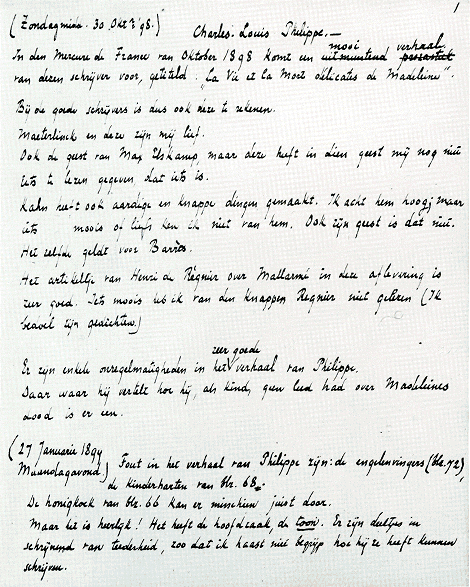 1
(Zondagmid. 30 Okt? 98.)
Charles-Louis Philippe.—
mooi verhaal
In den Mercure de France van Oktober 1898 komt een uitmuntend
van dezen schrijver voor, getiteld: "La Vie et la Mort délicates de Madeleine".
Bij de goede schrijvers is dus ook deze te rekenen.
Maeterlinck en deze zijn mij lief.
Ook de geest van Max Elskamp, maar deze heeft in dien geest mij nog niet
iets te lezen gegeven, dat iets is.
Kahn heeft ook aardige en knappe dingen gemaakt. Ik acht hem hoog; maar
iets moois of liefs ken ik niet van hem. Ook zijn geest is dat niet.
Het zelfde geldt voor Barrès.
Het artikeltje van Henri de Régnier over Mallarmé in deze aflevering is
zeer goed. Iets moois heb ik van den knappen Regnier niet gelezen (Ik
bedoel zijn gedichten.)
zeer goede
Er zijn enkele onregelmatigheden in het verhaal van Philippe.
Daar waar hij vertelt hoe hij, als kind, geen leed had over Madeleines
dood is er een.
(27 Januarie 1899
Maandagavond)
Fout in het verhaal van Philippe zijn: de engelenvingers (blz. 72),
de kinderharten van blz. 68.
De honigkoek van blz. 66 kan er misschien juist door.
Maar het is heerlijk! Het heeft de hoofdzaak, de toon. Er zijn deeltjes in
schrijnend van teederheid, zoo dat ik haast niet begrijp hoe hij ze heeft kunnen
schrijven.